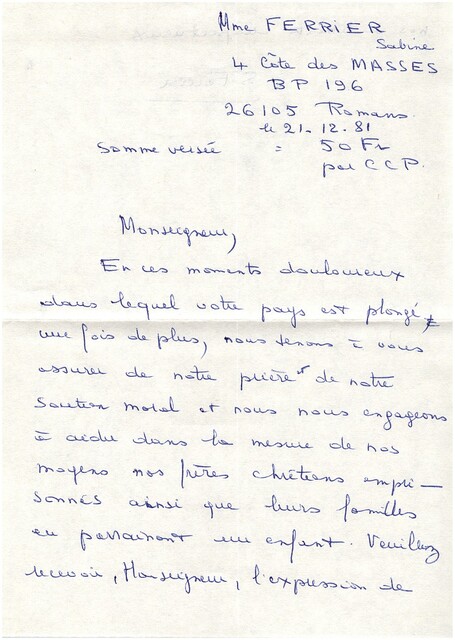 Mme FERRIER
Sabine
4 Côte des MASSES
BP 196
26105 Romans
le 21.12.81
Somme versée = 50 Fr
par CCP.
Monseigneur,
En ces moments douloureux
dans lequel votre pays est plongé,
une fois de plus, nous tenons à vous
assurer de notre prière et de notre
soutien moral et nous nous engageons
à aider dans la mesure de nos
moyens nos frères chrétiens empri-
sonnés ainsi que leurs familles
en parrainant un enfant. Veuillez
recevoir, Monseigneur, l'expression de